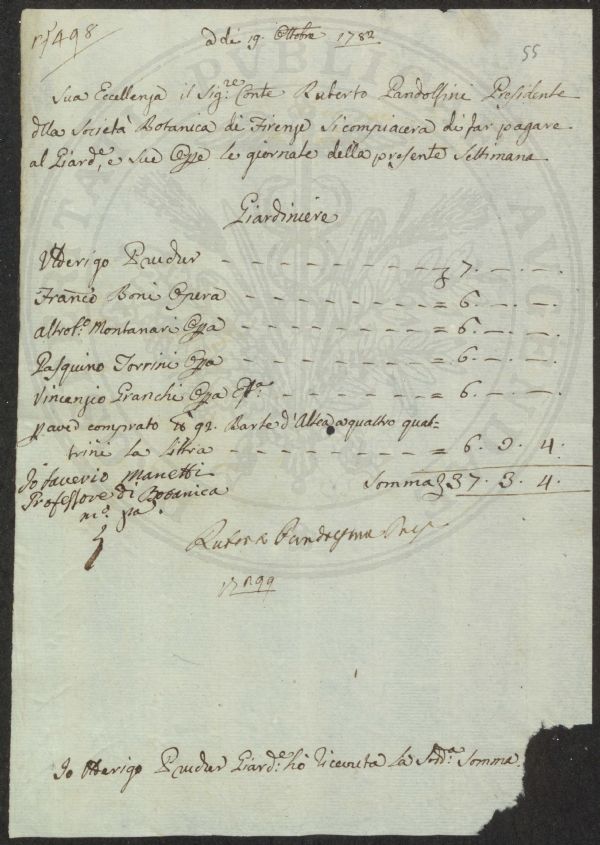 n.º 498
a dì 19. Ottobre 1782
55
Sua Eccellenza il Sig.re Conte Ruberto Pandolfini Presidente
della Società Botanica di Firenze si compiacerà di far pagare
al Giard.e, e sue Opre le giornate della presente Settimana
Giardiniere
Ulderigo Prucker - - - - - - - - = 7. - . -
Franco Boni Opera - - - - - - - = 6. - . -
altro f.o Montanari Opra - - - - - - = 6. - . -
Pasquino Torrini Opra - - - - - - = 6. - . -
Vincenzio Granchi Opra - - - - - = 6. - . -
p. aver comprato lb 92. Barbe d'Altea a quattro quat=
trini la libbra - - - - - - - - - 6. 3. 4.
Somma 37. 3. 4.
Io Saverio Manetti
Professore di Botanica
m.o pa.
Ruberto Pandolfini Pres.
Io Ulderigo Prucker Giard.e hò ricevuta la Sud.a Somma